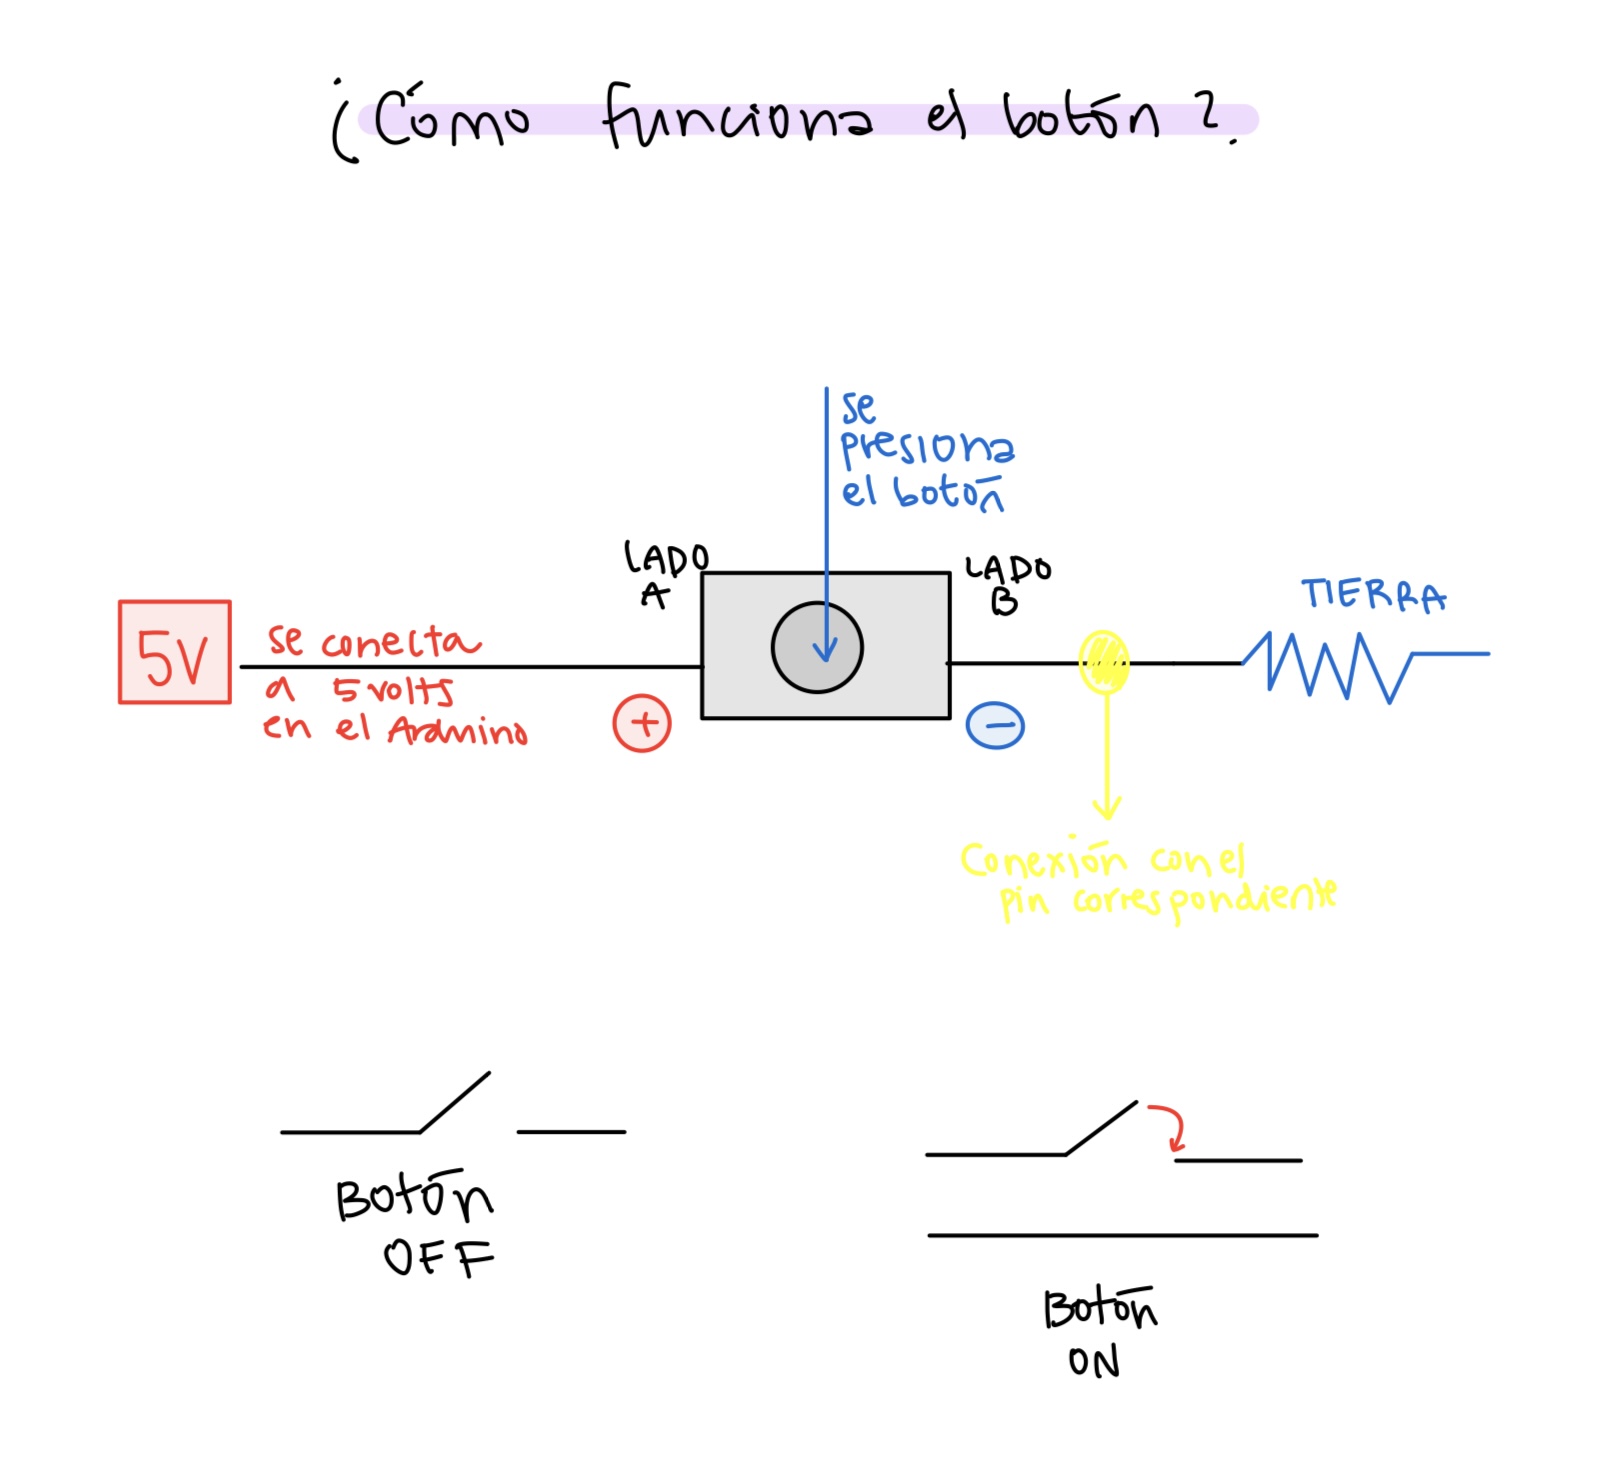 ¿Cómo funciona el botón?
se
presiona
el botón
LADO
A
LADO
B
TIERRA
5V
se conecta
a 5 volts
en el Arduino
+
−
Conexión con el
pin correspondiente
Botón
OFF
Botón
ON